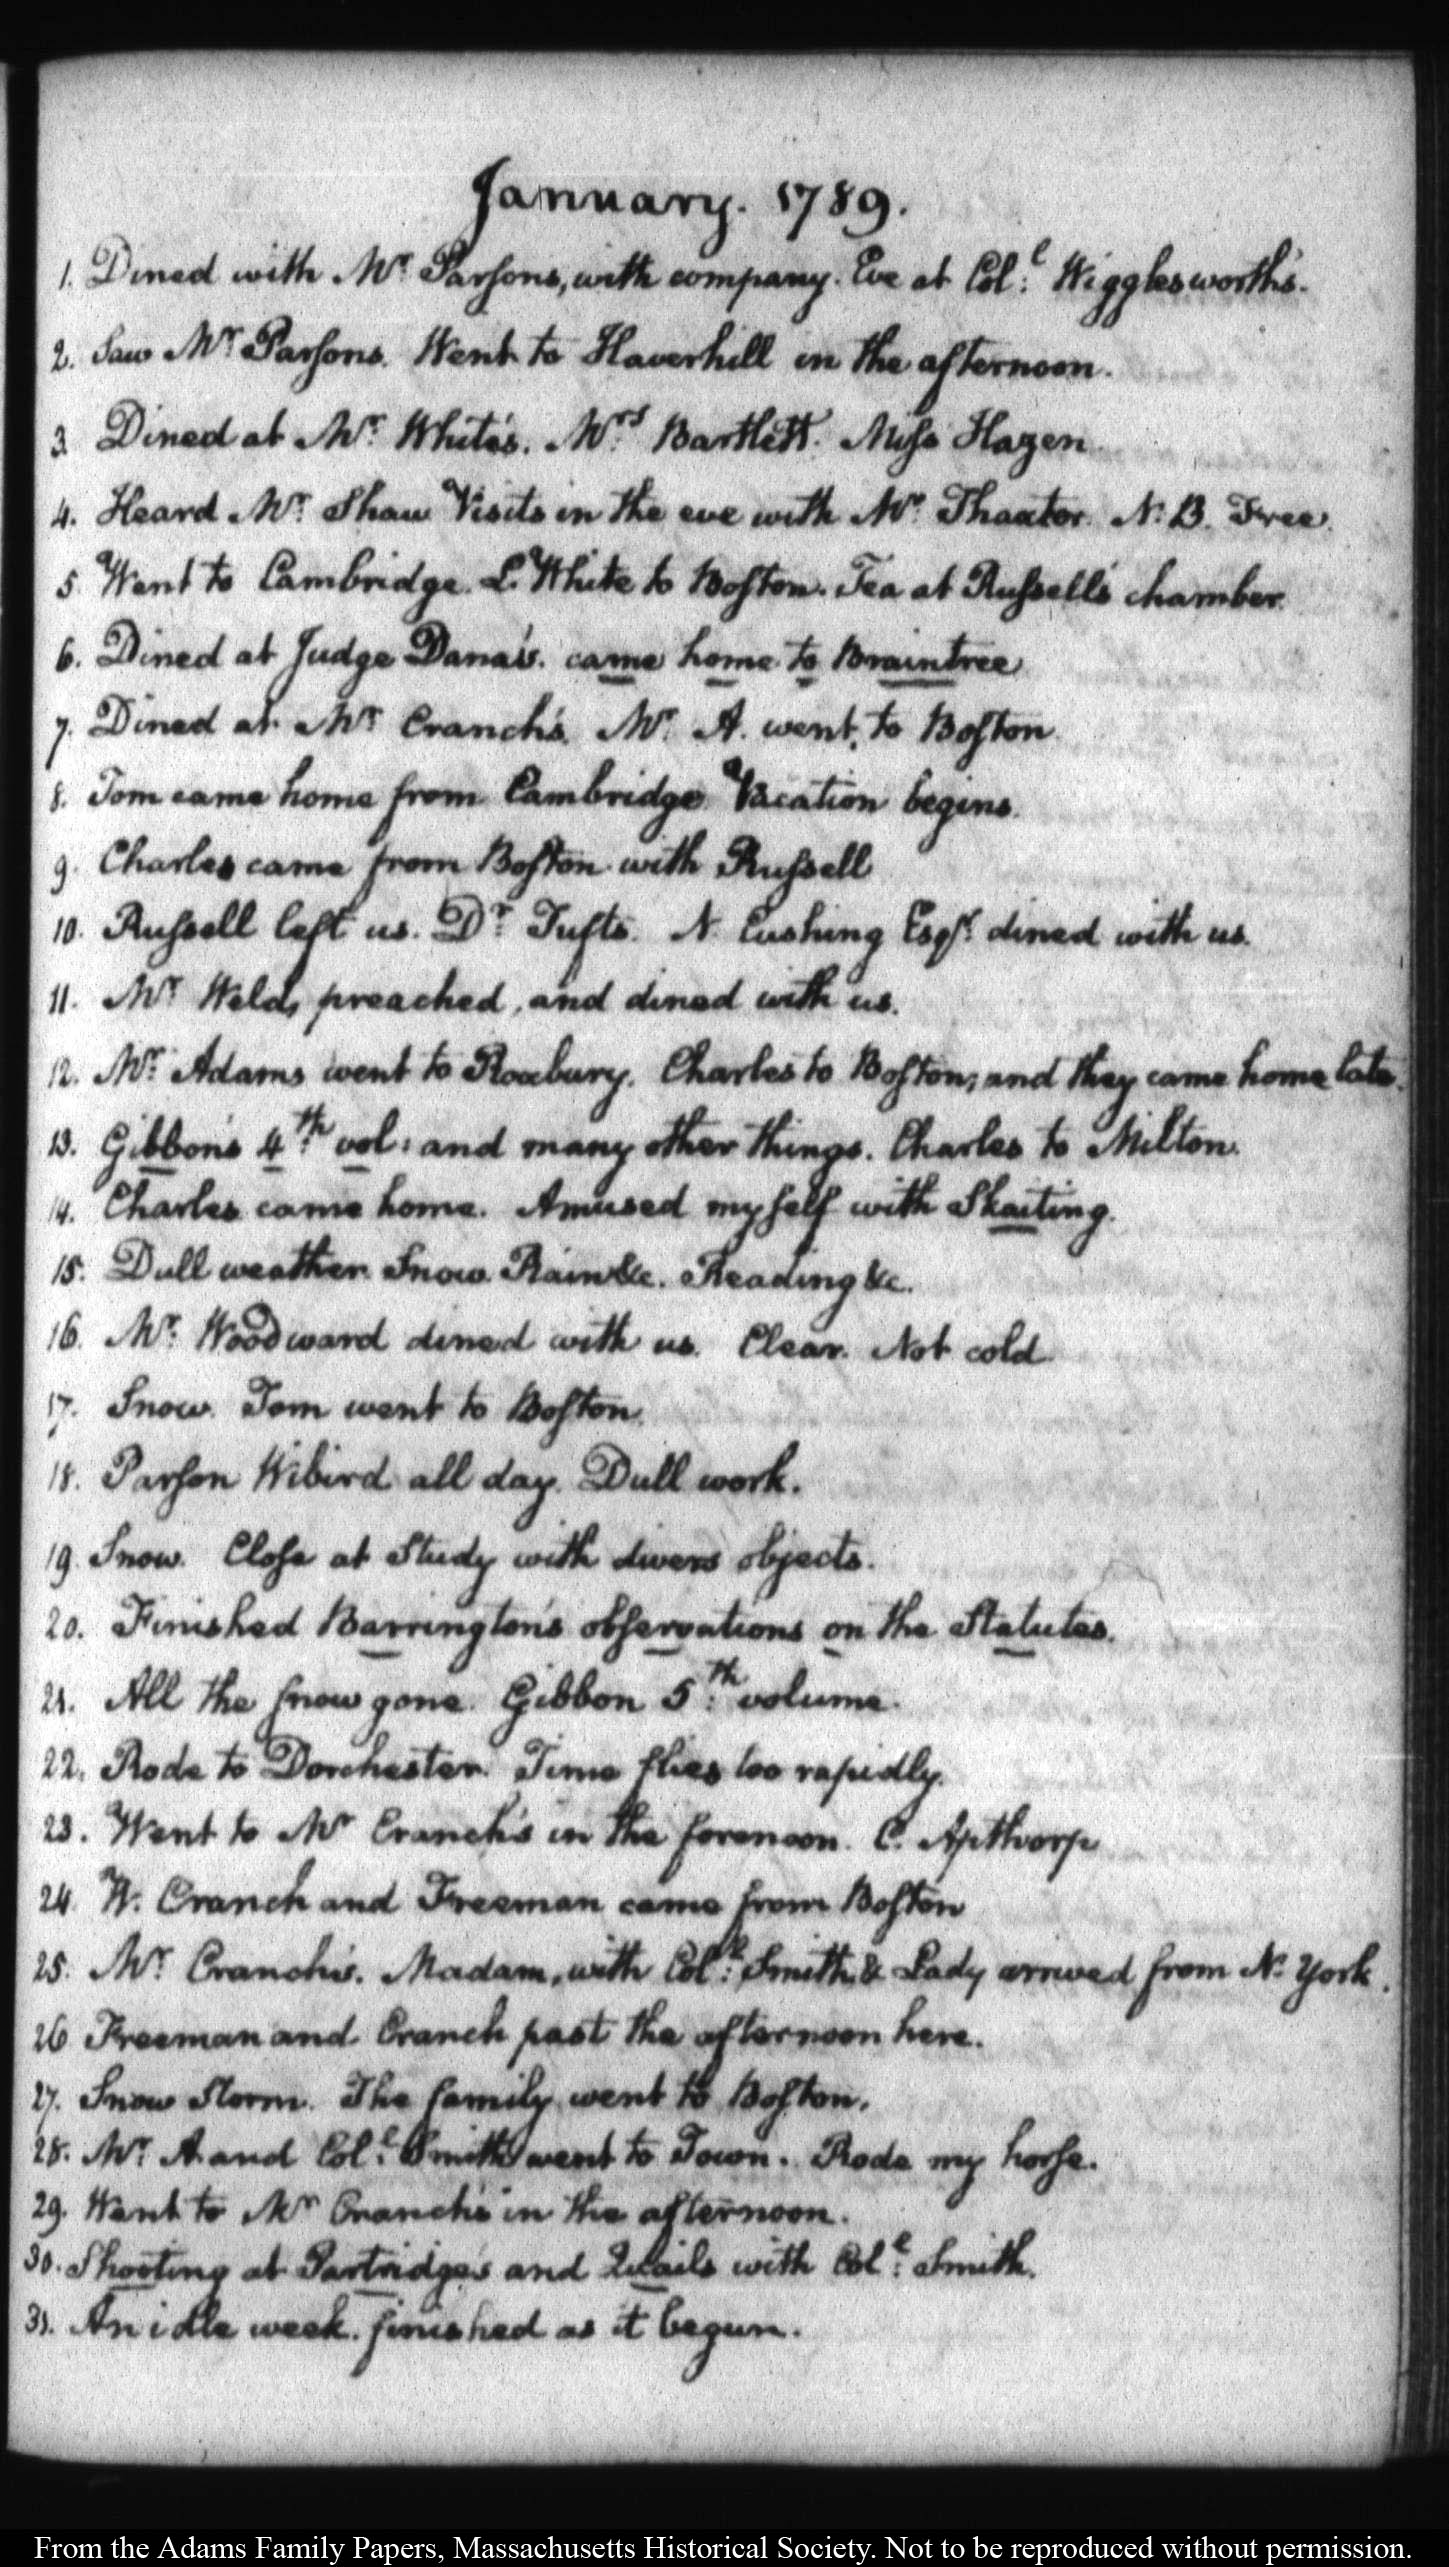 January. 1789.
1. Dined with Mr. Parsons, with company. Eve at Col:l Wigglesworth's.
2. Saw Mr. Parsons. Went to Haverhill in the afternoon.
3. Dined at Mr. White's. Mrs. Bartlett. Miss Hazen
4. Heard Mr. Shaw. Visits in the eve with Mr. Thaxter. N. B. Free.
5. Went to Cambridge. L. White to Boston. Tea at Russell's chamber.
6. Dined at Judge Dana's. came home to Braintree
7. Dined at Mr. Cranch's. Mr. A. went to Boston.
8. Tom came home from Cambridge. Vacation begins.
9. Charles came from Boston with Russell
10. Russell left us. Dr. Tufts. N. Cushing Esqr. dined with us.
11. Mr. Weld, preached, and dined with us.
12. Mr. Adams went to Roxbury. Charles to Boston; and they came home late.
13. Gibbon's 4th: vol: and many other things. Charles to Milton.
14. Charles came home. Amused myself with Skaiting.
15. Dull weather. Snow. Rain &c. Reading &c.
16. Mr. Woodward dined with us. Clear. Not cold.
17. Snow. Tom went to Boston.
18. Parson Wibird all day. Dull work.
19. Snow. Close at Study with divers objects.
20. Finished Barrington's observations on the Statutes.
21. All the snow gone. Gibbon 5th: volume.
22. Rode to Dorchester. Time flies too rapidly.
23. Went to Mr. Cranch's in the forenoon. C. Apthorp
24. W. Cranch and Freeman came from Boston
25. Mr. Cranch's. Madam, with Col:l Smith & Lady arrived from N. York.
26. Freeman and Cranch past the afternoon here.
27. Snow Storm. The family went to Boston.
28. Mr. A. and Col:l Smith went to Town. Rode my horse.
29. Went to Mr. Cranch's in the afternoon.
30. Shooting at Partridges and Quails with Col:l Smith.
31. An idle week. finished as it begun.
From the Adams Family Papers, Massachusetts Historical Society. Not to be reproduced without permission.